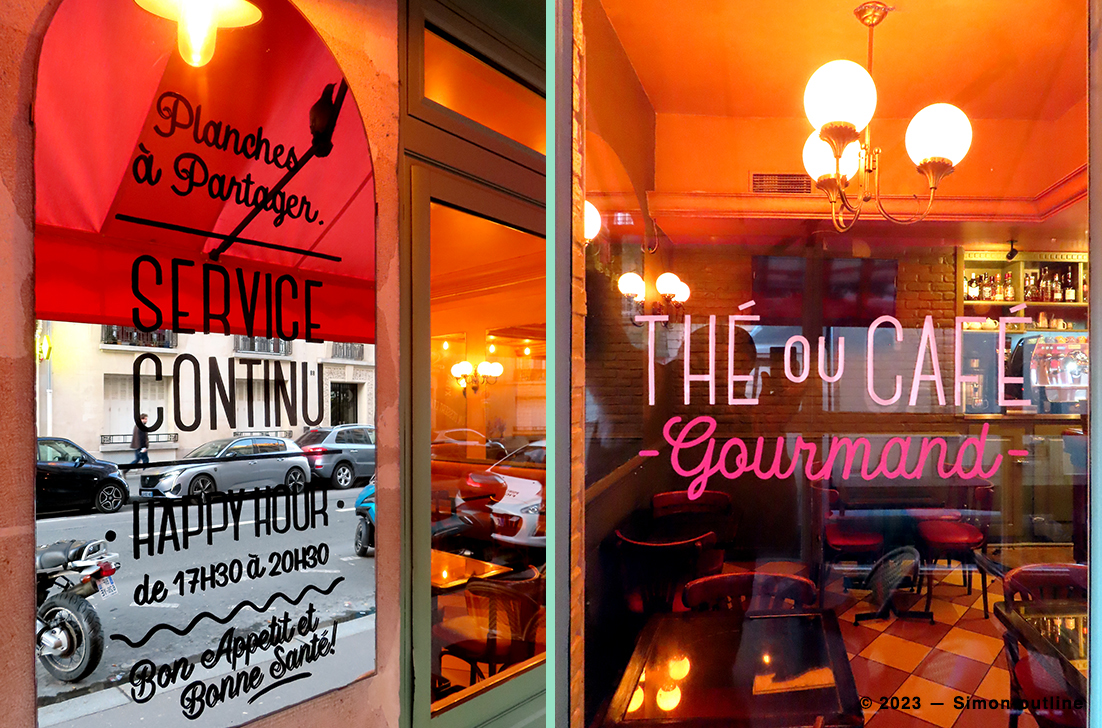 Planches
à Partager.
SERVICE
CONTINÜ
· HAPPY HOUR ·
de 17H30 à 20H30
Bon Appetit et
Bonne Santé!
THÉ OU CAFÉ
-Gourmand-
© 2023 — Simon outline